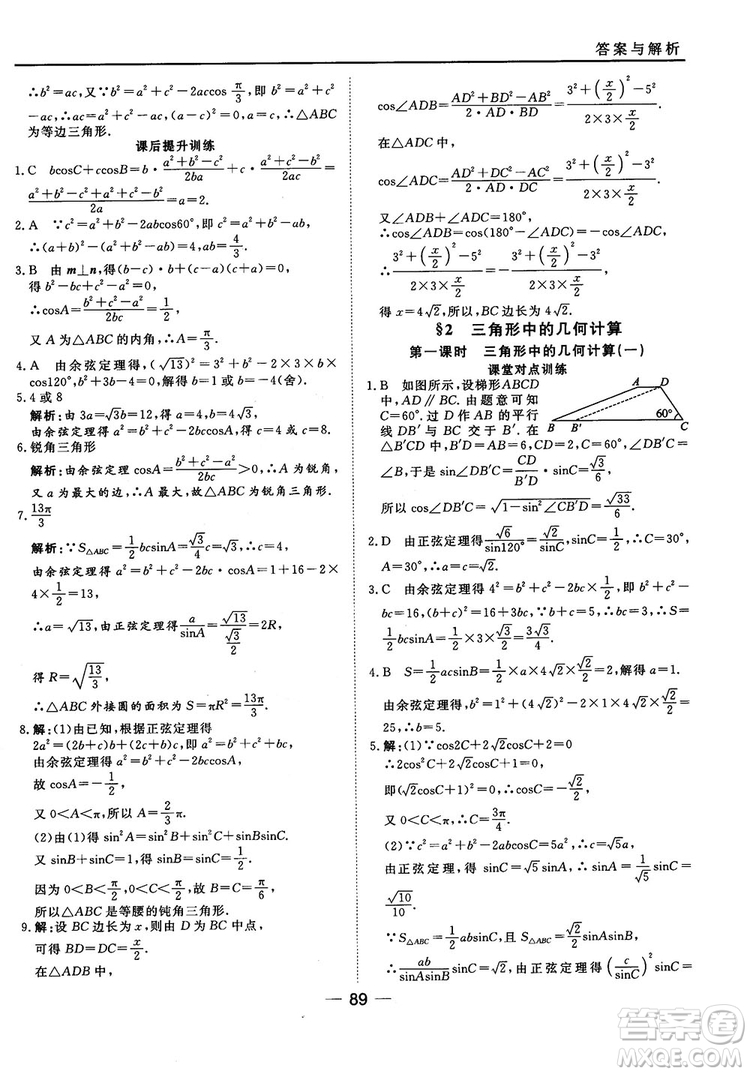 答案与解析
∴b²=ac,又∵b²=a²+c²-2accos π/3,即 a²+c²
-ac=ac,∴(a-c)²=0,∴a=c,∴△ABC
为等边三角形.
课后提升训练
1.C bcosC+ccosB=b·(a²+b²-c²)/(2ba)+c·(a²+c²-b²)/(2ac)=
(a²+b²-c²+a²+c²-b²)/(2a)=a=2.
2.A ∵c²=a²+b²-2abcos60°,即c²=a²+b²-ab,
∴(a+b)²-(a²+b²-ab)=4,ab=4/3.
3.B 由 m⊥n,得(b-c)·b+(c-a)(c+a)=0,
得b²-bc+c²-a²=0,
∴cosA=(b²+c²-a²)/(2bc)=1/2,
又A为△ABC的内角,∴A=π/3.
4.A 由余弦定理得,(√13)²=b²+3²-2×3×b×
cos120°,解得b=1或b=-4(舍).
5.4或8
解析:由3a=√3b=12,得a=4,b=4√3,
由余弦定理得c=4或8.
6.锐角三角形
解析:由余弦定理,cosA=(b²+c²-a²)/(2bc)>0,∴A为锐角,
又a为最大的边,∴A最大,故△ABC为锐角三角形.
7.13π/3
解析:∵S△ABC=1/2 bcsinA=√3/4 c=√3,∴c=4,
由余弦定理得a²=b²+c²-2bc·cosA=1+16-2×
4×1/2=13,
∴a=√13,由正弦定理得 a/sinA=√13/(√3/2)=2R,
得R=√(13/3),
∴△ABC外接圆的面积为S=πR²=13π/3.
8.解:(1)由已知,根据正弦定理得
2a²=(2b+c)b+(2c+b)c,即a²=b²+c²+bc,
由余弦定理得a²=b²+c²-2bccosA,
故cosA=-1/2,
又0<A<π,所以A=2/3 π.
(2)由(1)得sin²A=sin²B+sin²C+sinBsinC.
又sinB+sinC=1,得sinB=sinC=1/2.
因为0<B<π/2,0<C<π/2,故B=C=π/6,
所以△ABC是等腰的钝角三角形.
9.解:设BC边长为x,则由D为BC中点,
可得BD=DC=x/2.
在△ADB中,
cos∠ADB=(AD²+BD²-AB²)/(2·AD·BD)=(3²+(x/2)²-5²)/(2×3×x/2).
在△ADC中,
cos∠ADC=(AD²+DC²-AC²)/(2·AD·DC)=(3²+(x/2)²-3²)/(2×3×x/2).
又∠ADB+∠ADC=180°,
∴cos∠ADB=cos(180°-∠ADC)=-cos∠ADC,
∴(3²+(x/2)²-5²)/(2×3×x/2)=-(3²+(x/2)²-3²)/(2×3×x/2).
得x=4√2,所以,BC边长为4√2.
§2 三角形中的几何计算
第一课时 三角形中的几何计算(一)
课堂对点训练
1.B 如图所示,设梯形ABCD
中,AD∥BC.由已知得
C=60°.过D作AB的平行
线DB′与BC交于B′.在
△B′CD中,由正弦定理
A
D
B
B′
60°
C
得,于是sin∠CB′D=CD/DB′·sin60°=√3/6.
所以cos∠DB′C=√(1-sin²∠CB′D)=√33/6.
2.D 由正弦定理得 √6/sin120°=√2/sinC,∴sinC=1/2,∴C=30°,
A=30°,∴a=c=√2.
3.C 由余弦定理得a²=b²+c²-2bccosA=b²+c²-bc
=(b+c)²-3bc=4²-3bc=7,∴bc=3,∴S=
1/2 bcsinA=1/2×3×√3/2=3√3/4.
4.B S=1/2 acsinB=1/2×a×4√2×√2/2=2.解得a=1.
由余弦定理得,b²=1²+(4√2)²-2×1×4√2×√2/2=
25,∴b=5.
5.解:(1)∵cos2C+2√2cosC+2=0,
∴2cos²C+2√2cosC+1=0,
即(√2cosC+1)²=0,∴cosC=-√2/2.
又0<C<π,∴C=3π/4.
(2)∵c²=a²+b²-2abcosC=5a²,∴c=√5a,
由正弦定理,得sinC=√5sinA,∴sinA=1/√5 sinC=
√10/10.
∵S△ABC=1/2 absinC,且S△ABC=√2/2 sinAsinB,
∴ab/(sinAsinB) sinC=√2,由正弦定理得(c/sinC)²sinC=
89
答案卷